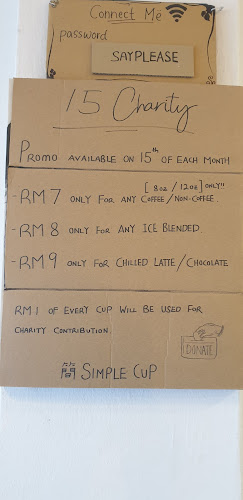 Connect Me
password
SAYPLEASE
15 Charity
PROMO AVAILABLE ON 15th OF EACH MONTH
[8oz / 12oz] ONLY!!
- RM 7 ONLY FOR ANY COFFEE / NON-COFFEE.
- RM 8 ONLY FOR ANY ICE BLENDED
- RM 9 ONLY FOR CHILLED LATTE / CHOCOLATE
RM 1 OF EVERY CUP WILL BE USED FOR
CHARITY CONTRIBUTION.
DONATE
簡 SIMPLE CUP